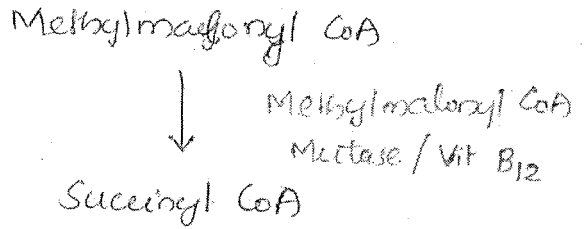 Methylmalonyl CoA
Methylmalonyl CoA
Mutase / Vit B12
Succinyl CoA